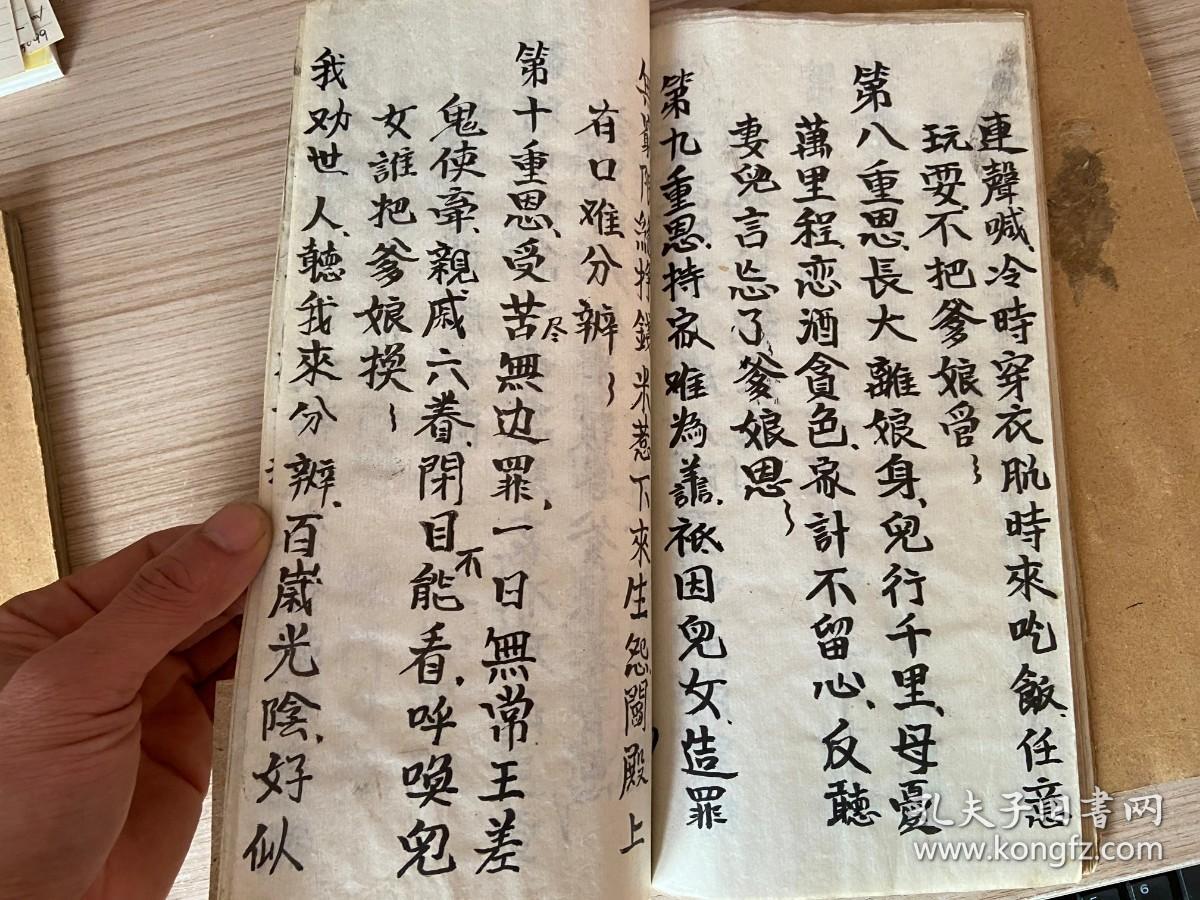 連聲喊、冷時穿衣肌時來吃飯、任意
玩耍、不把爹娘管
第八重恩、長大離娘身、兒行千里、母憂
萬里程、恋酒貪色、家計不留心、反聽
妻兒言忘了爹娘恩
第九重恩、持家难為
祇因兒女、造罪
米惹下來生怨閻殿上
有口难分辨
第十重恩、受苦尽無边罪、一日無常王差
鬼使牽、親戚六眷、閉目不能看、呼喚兒
女誰把爹娘换
我劝世人、聽我來分辨、百歲光陰、好似
孔夫子旧書网
www.kongfz.com
6